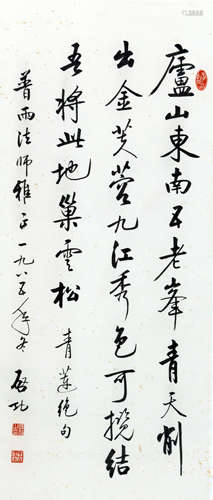 廬山東南五老峯青天削
出金芙蓉九江秀色可攬結
吾將此地巢雲松 青蓮絕句
普雨法師雅正一九八五年冬 啟功